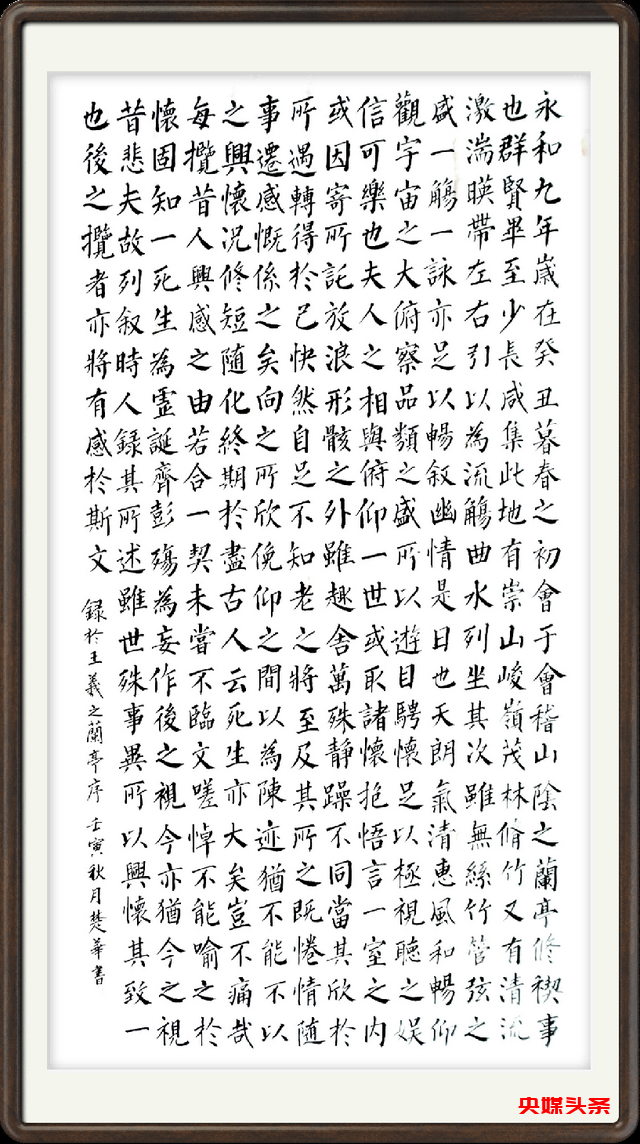 永和九年歲在癸丑暮春之初會于會稽山陰之蘭亭修禊事
也群賢畢至少長咸集此地有崇山峻嶺茂林脩竹又有清流
激湍暎帶左右引以為流觴曲水列坐其次雖無絲竹管弦之
盛一觴一詠亦足以暢叙幽情是日也天朗氣清惠風和暢仰
觀宇宙之大俯察品類之盛所以遊目騁懷足以極視聽之娛
信可樂也夫人之相與俯仰一世或取諸懷抱悟言一室之內
或因寄所託放浪形骸之外雖趣舍萬殊静躁不同當其欣於
所遇轉得於己快然自足不知老之將至及其所之既惓情隨
事遷感慨係之矣向之所欣俛仰之間以為陳迹猶不能不以
之興懷況修短隨化終期於盡古人云死生亦大矣豈不痛哉
每攬昔人興感之由若合一契未嘗不臨文嗟悼不能喻之於
懷固知一死生為霊誕齊彭殤為妄作後之視今亦猶今之視
昔悲夫故列叙時人録其所述雖世殊事異所以興懷其致一
也後之攬者亦將有感於斯文
録於王羲之蘭亭序 壬寅秋月楚華書
央媒头条